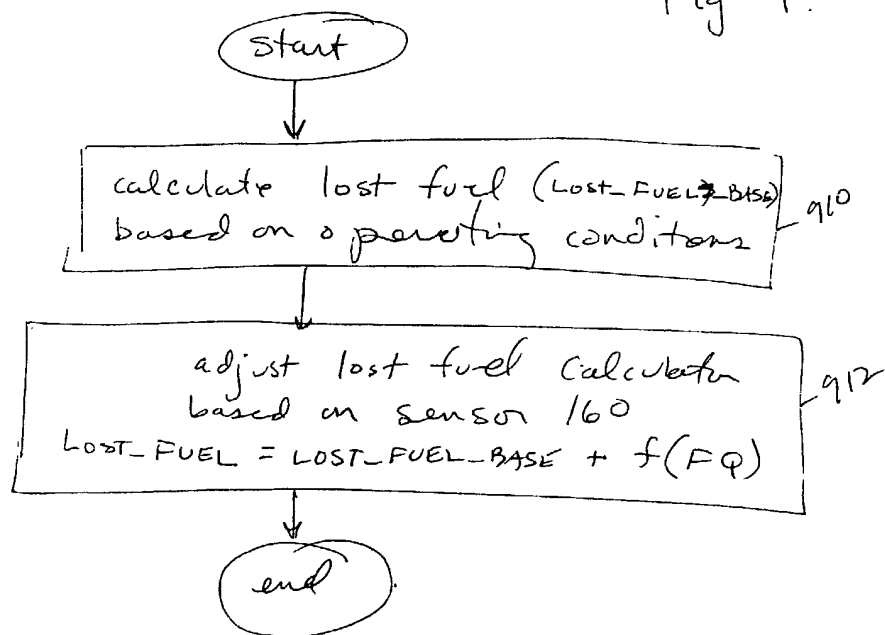 Fig
start
calculate lost fuel (LOST_FUEL_BASE)
based on operating conditions
910
adjust lost fuel calculation
based on sensor 160
LOST_FUEL = LOST_FUEL_BASE + f(FQ)
912
end